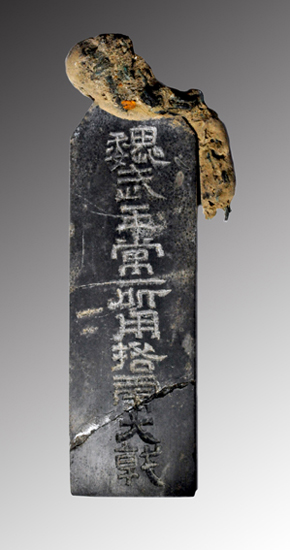 魏武王常所用挌虎大戟